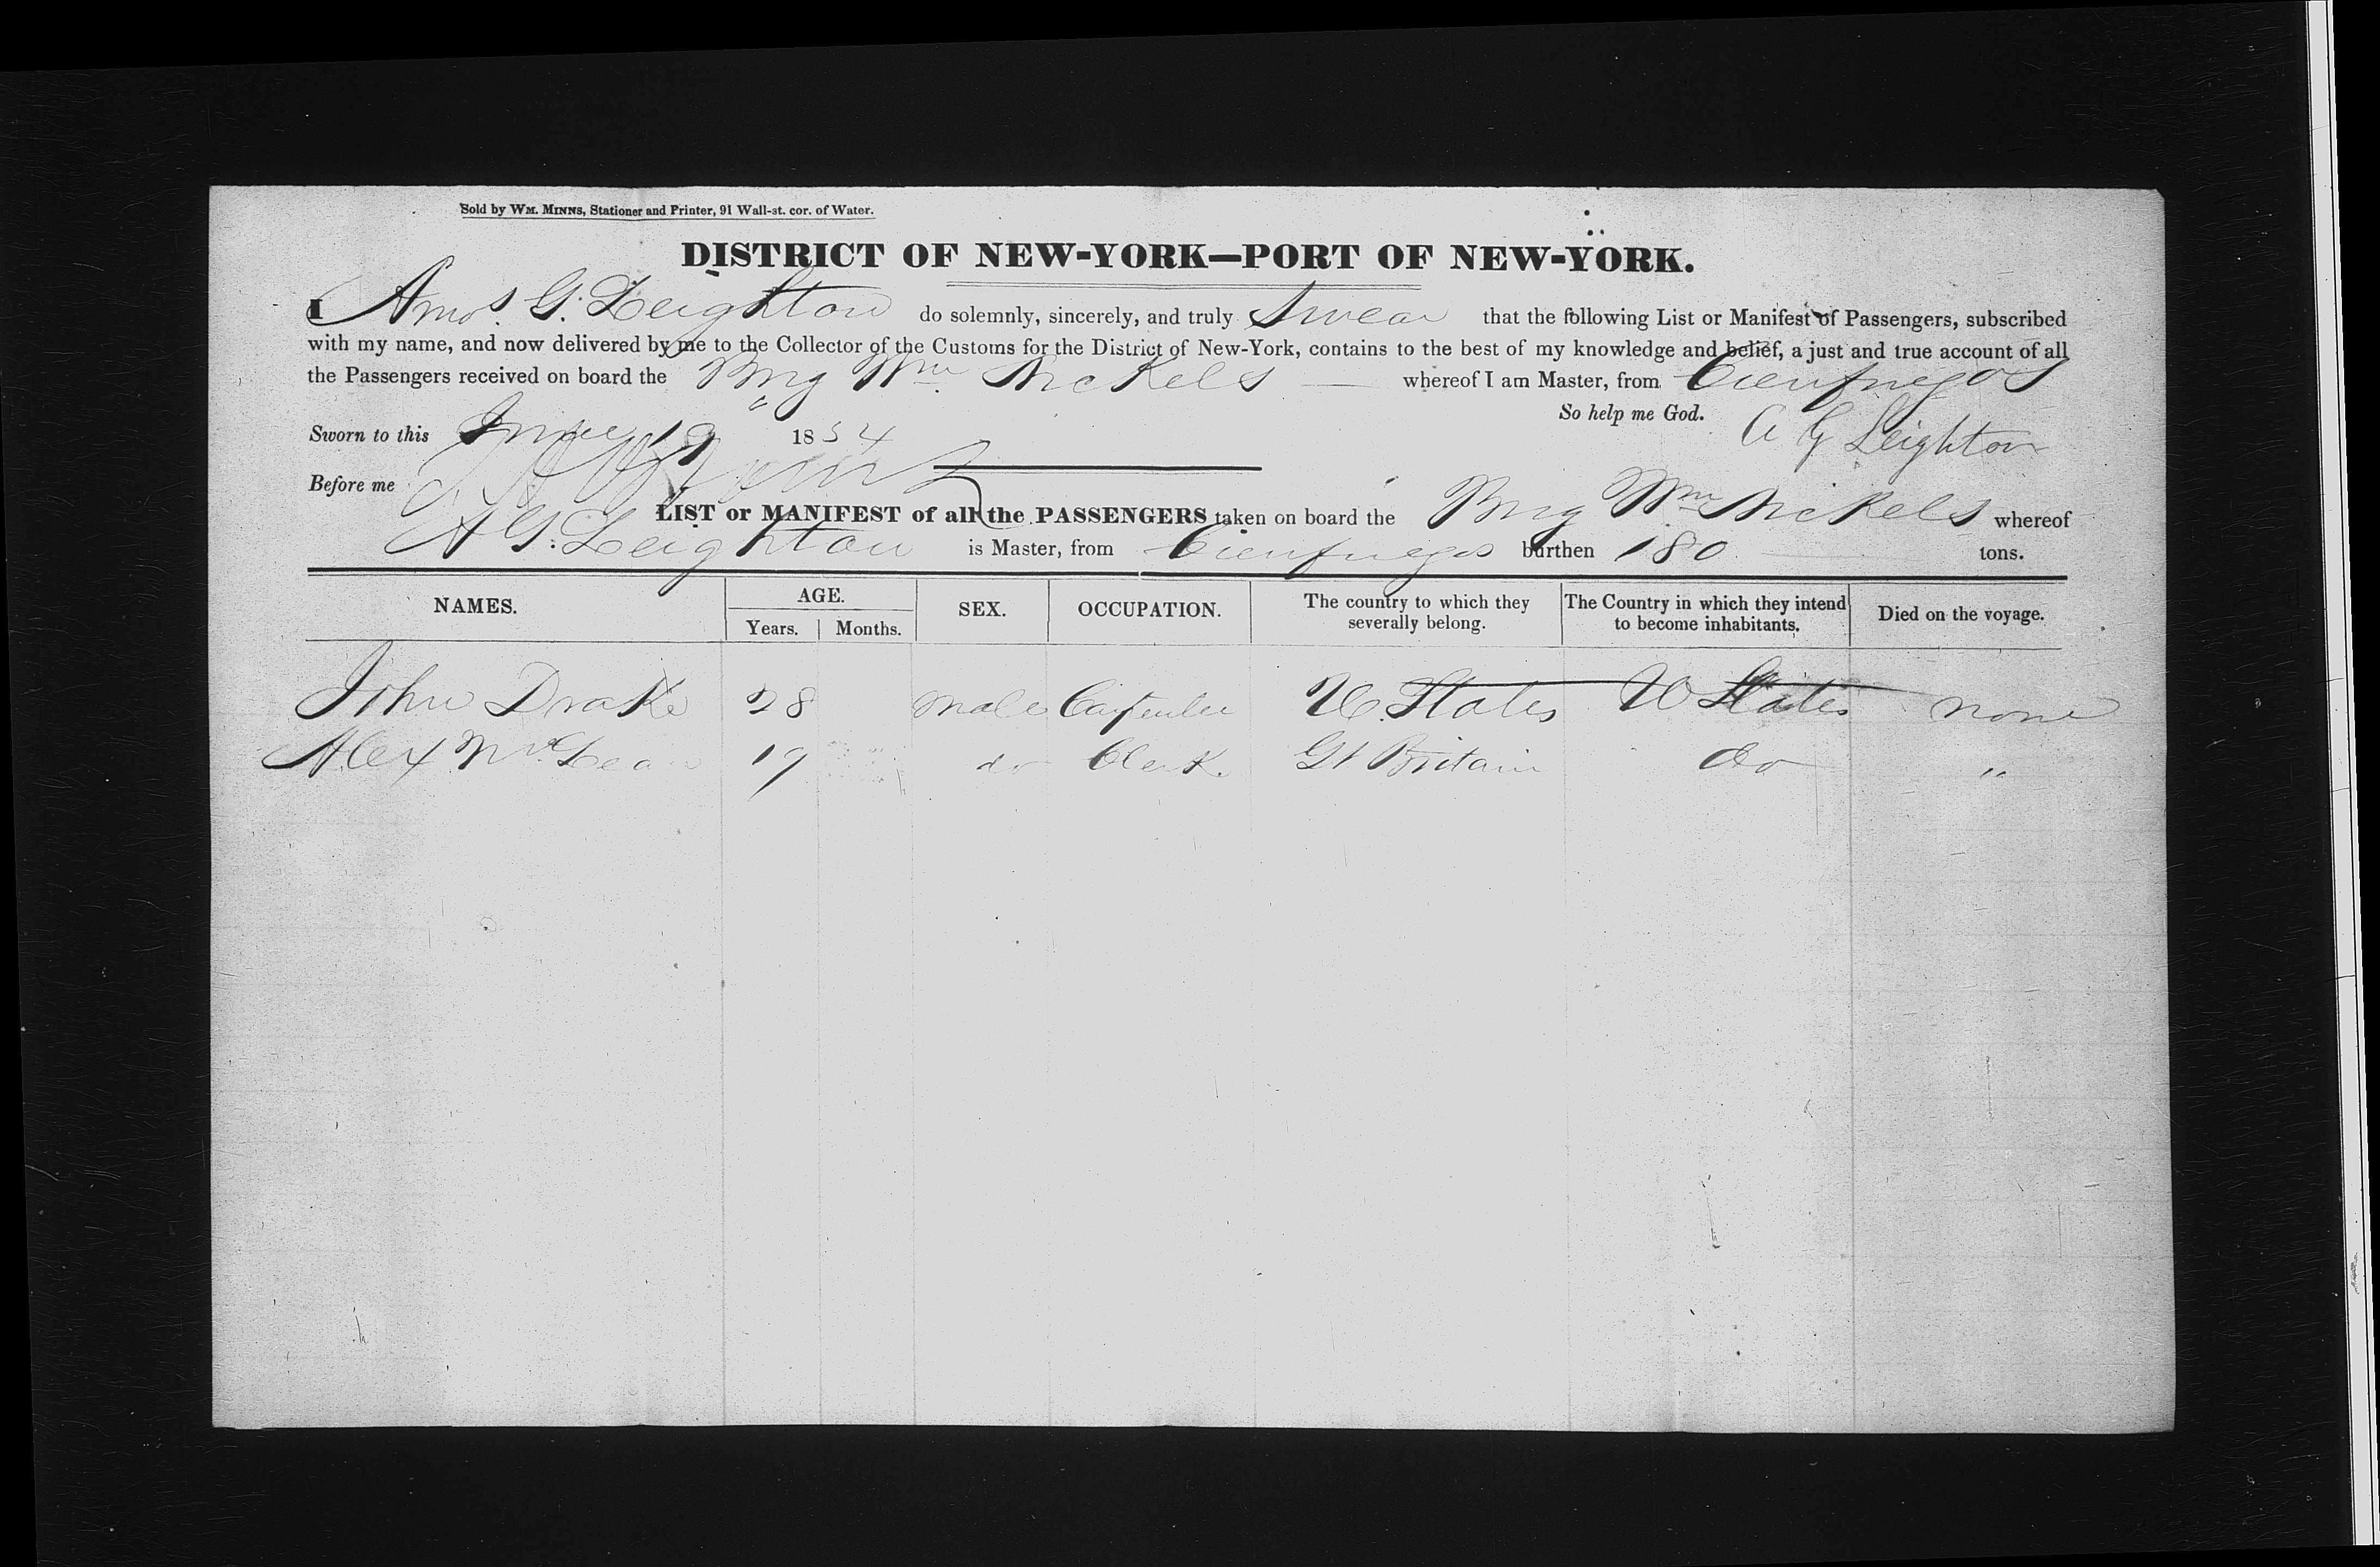 Sold by WM. MINNS, Stationer and Printer, 91 Wall-st. cor. of Water.
DISTRICT OF NEW-YORK—PORT OF NEW-YORK.
I Amos. G. Leighton do solemnly, sincerely, and truly Swear that the following List or Manifest of Passengers, subscribed
with my name, and now delivered by me to the Collector of the Customs for the District of New-York, contains to the best of my knowledge and belief, a just and true account of all
the Passengers received on board the Brig Wm. Nickels whereof I am Master, from Cienfuegos
So help me God.
Sworn to this June 19 1854 A G Leighton
Before me
LIST or MANIFEST of all the PASSENGERS taken on board the Brig Wm Nickels whereof
A G. Leighton is Master, from Cienfuegos burthen 180 tons.
NAMES. AGE. Years. Months. SEX. OCCUPATION. The country to which they severally belong. The Country in which they intend to become inhabitants. Died on the voyage.
John Drake 28 male Carpenter U. States U States none
Alex McLean 19 do Clerk. Gt Britain do "